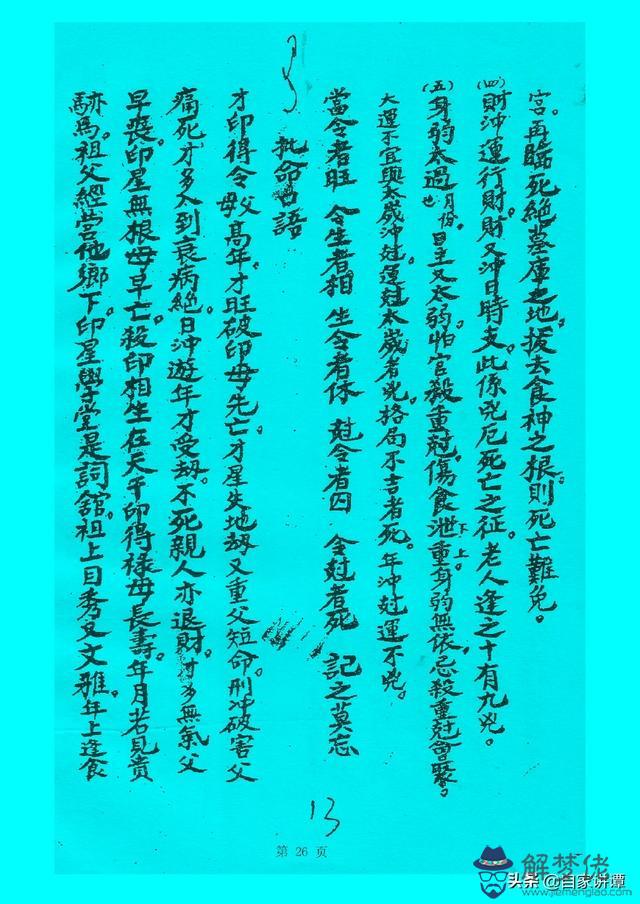 宮。再臨死絕墓庫之地。拔去食神之根。則死亡難免。
(四)財沖運行財。財又沖日時支。此係凶厄死亡之征。老人逢之十有九凶。
(五)身弱太過月份也。日主又太弱。怕官殺重尅。傷食泄重下上。身弱無依。忌殺重尅會聚。
大運不宜與太歲沖尅。運尅太歲者凶。格局不吉者死。年沖尅運不凶。
當令者旺 令生者相 生令者休 尅令者囚 令尅者死 記之莫忘
批命口語
才印得令父母高年。才旺破印母先亡。才星失地劫又重父短命。刑沖破害父
痛死才多入到衰病絕。日沖遊年才受劫。不死親人亦退財。才多無氣父
早喪。印星無根母早亡。殺印相生在天干印得祿母長壽。年月若見貴
馬。祖父經營他鄉下。印星學堂是詞舘。祖上目秀又文雅。年上逢食
13
第 26 页
解梦佬
www.jiemenglao.com
头条 @自家讲谭